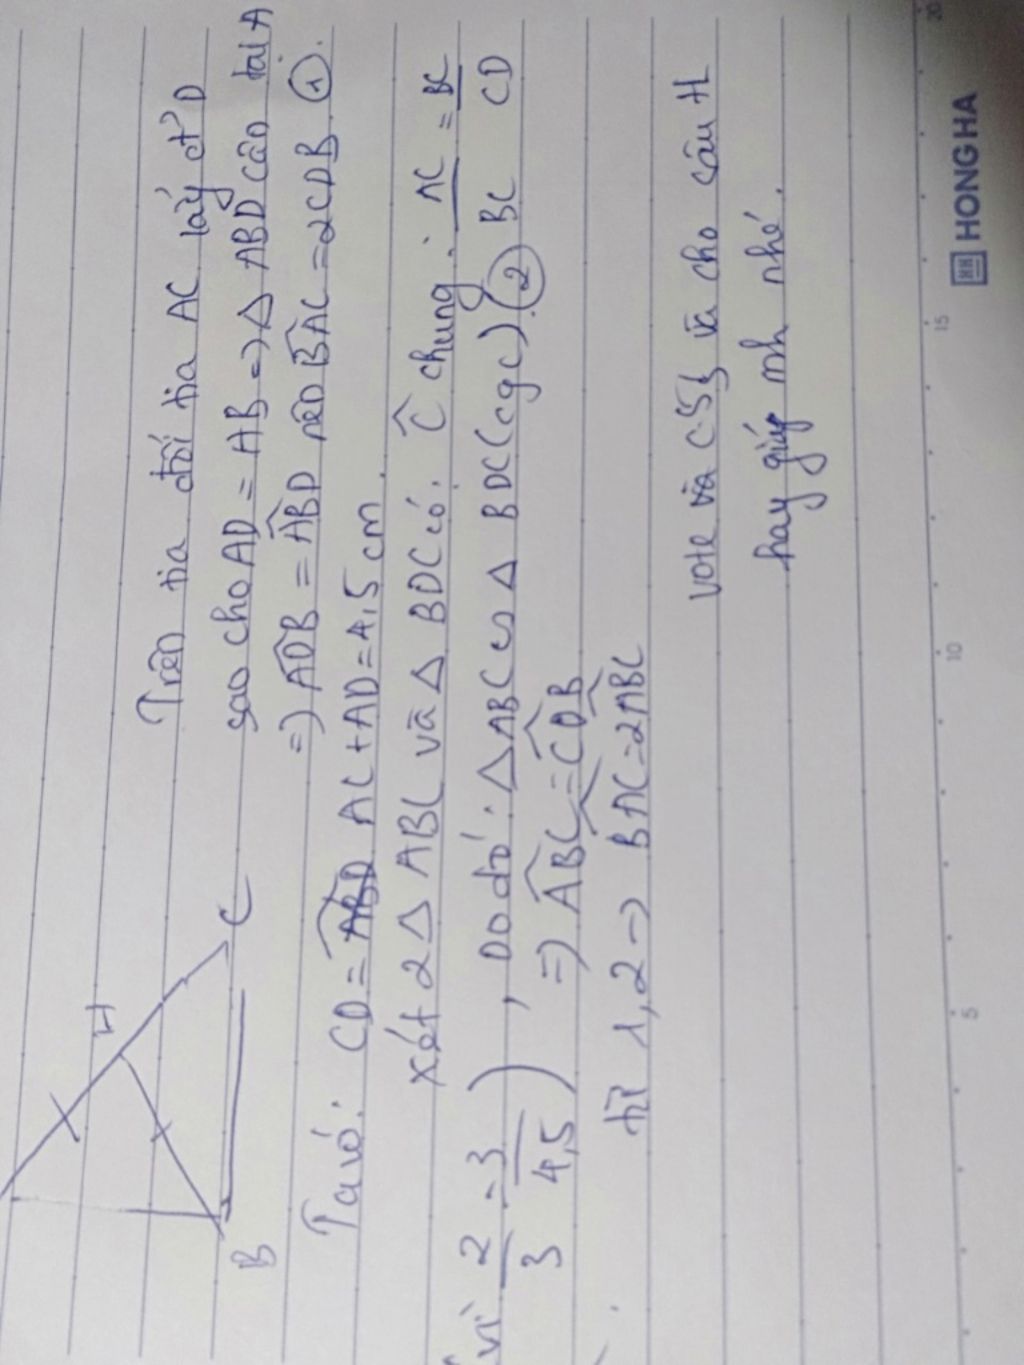 Trên tia đối tia AC lấy đ' D
sao cho AD = AB => Δ ABD cân tại A
=> ADB = ABD nên BAC = 2CDB ①.
H
C
B
Ta có: CD = AC + AD = 4,5 cm.
xét 2 Δ ABC và Δ BDC có: C chung: AC/BC = BC/CD
(vì 2/3 = 3/4,5), Do đó: Δ ABC ∽ Δ BDC (cgc) ②
=> ABC = CDB
từ 1, 2 => BAC = 2ABC
vote và cho câu tL
hay giúp mh nhé.
HONG HA
5
10
15
20